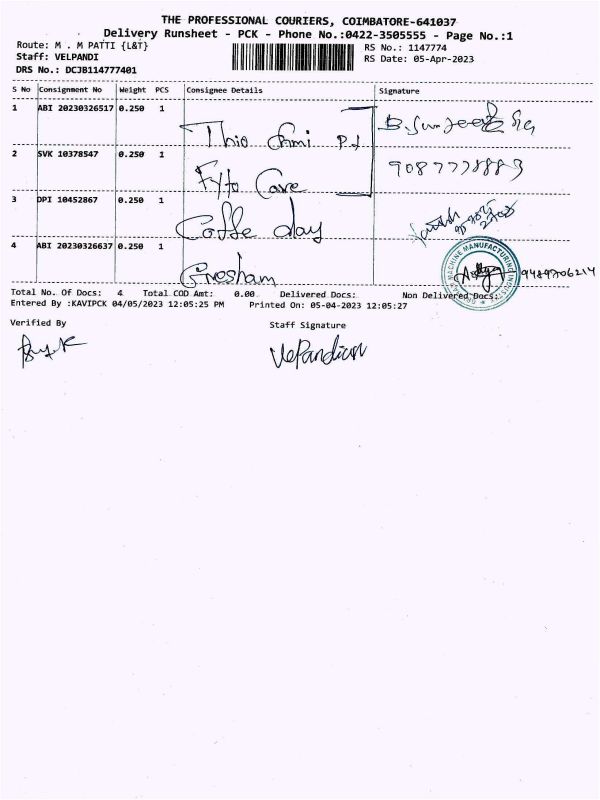 THE PROFESSIONAL COURIERS, COIMBATORE-641037
Delivery Runsheet - PCK - Phone No.:0422-3505555 - Page No.:1
Route: M . M PATTI {L&T}
RS No.: 1147774
Staff: VELPANDI
RS Date: 05-Apr-2023
DRS No.: DCJB114777401
S No Consignment No Weight PCS Consignee Details Signature
1 ABI 20230326517 0.250 1
Thio
2 SVK 10378547 0.250 1
9087778883
Fyto Care
3 DPI 10452867 0.250 1
Coffe day
4 ABI 20230326637 0.250 1
MACHINE MANUFACTURING
9489706214
Gresham
Total No. Of Docs: 4 Total COD Amt: 0.00 Delivered Docs: Non Delivered Docs:
Entered By :KAVIPCK 04/05/2023 12:05:25 PM Printed On: 05-04-2023 12:05:27
Verified By
Staff Signature
VelPandian